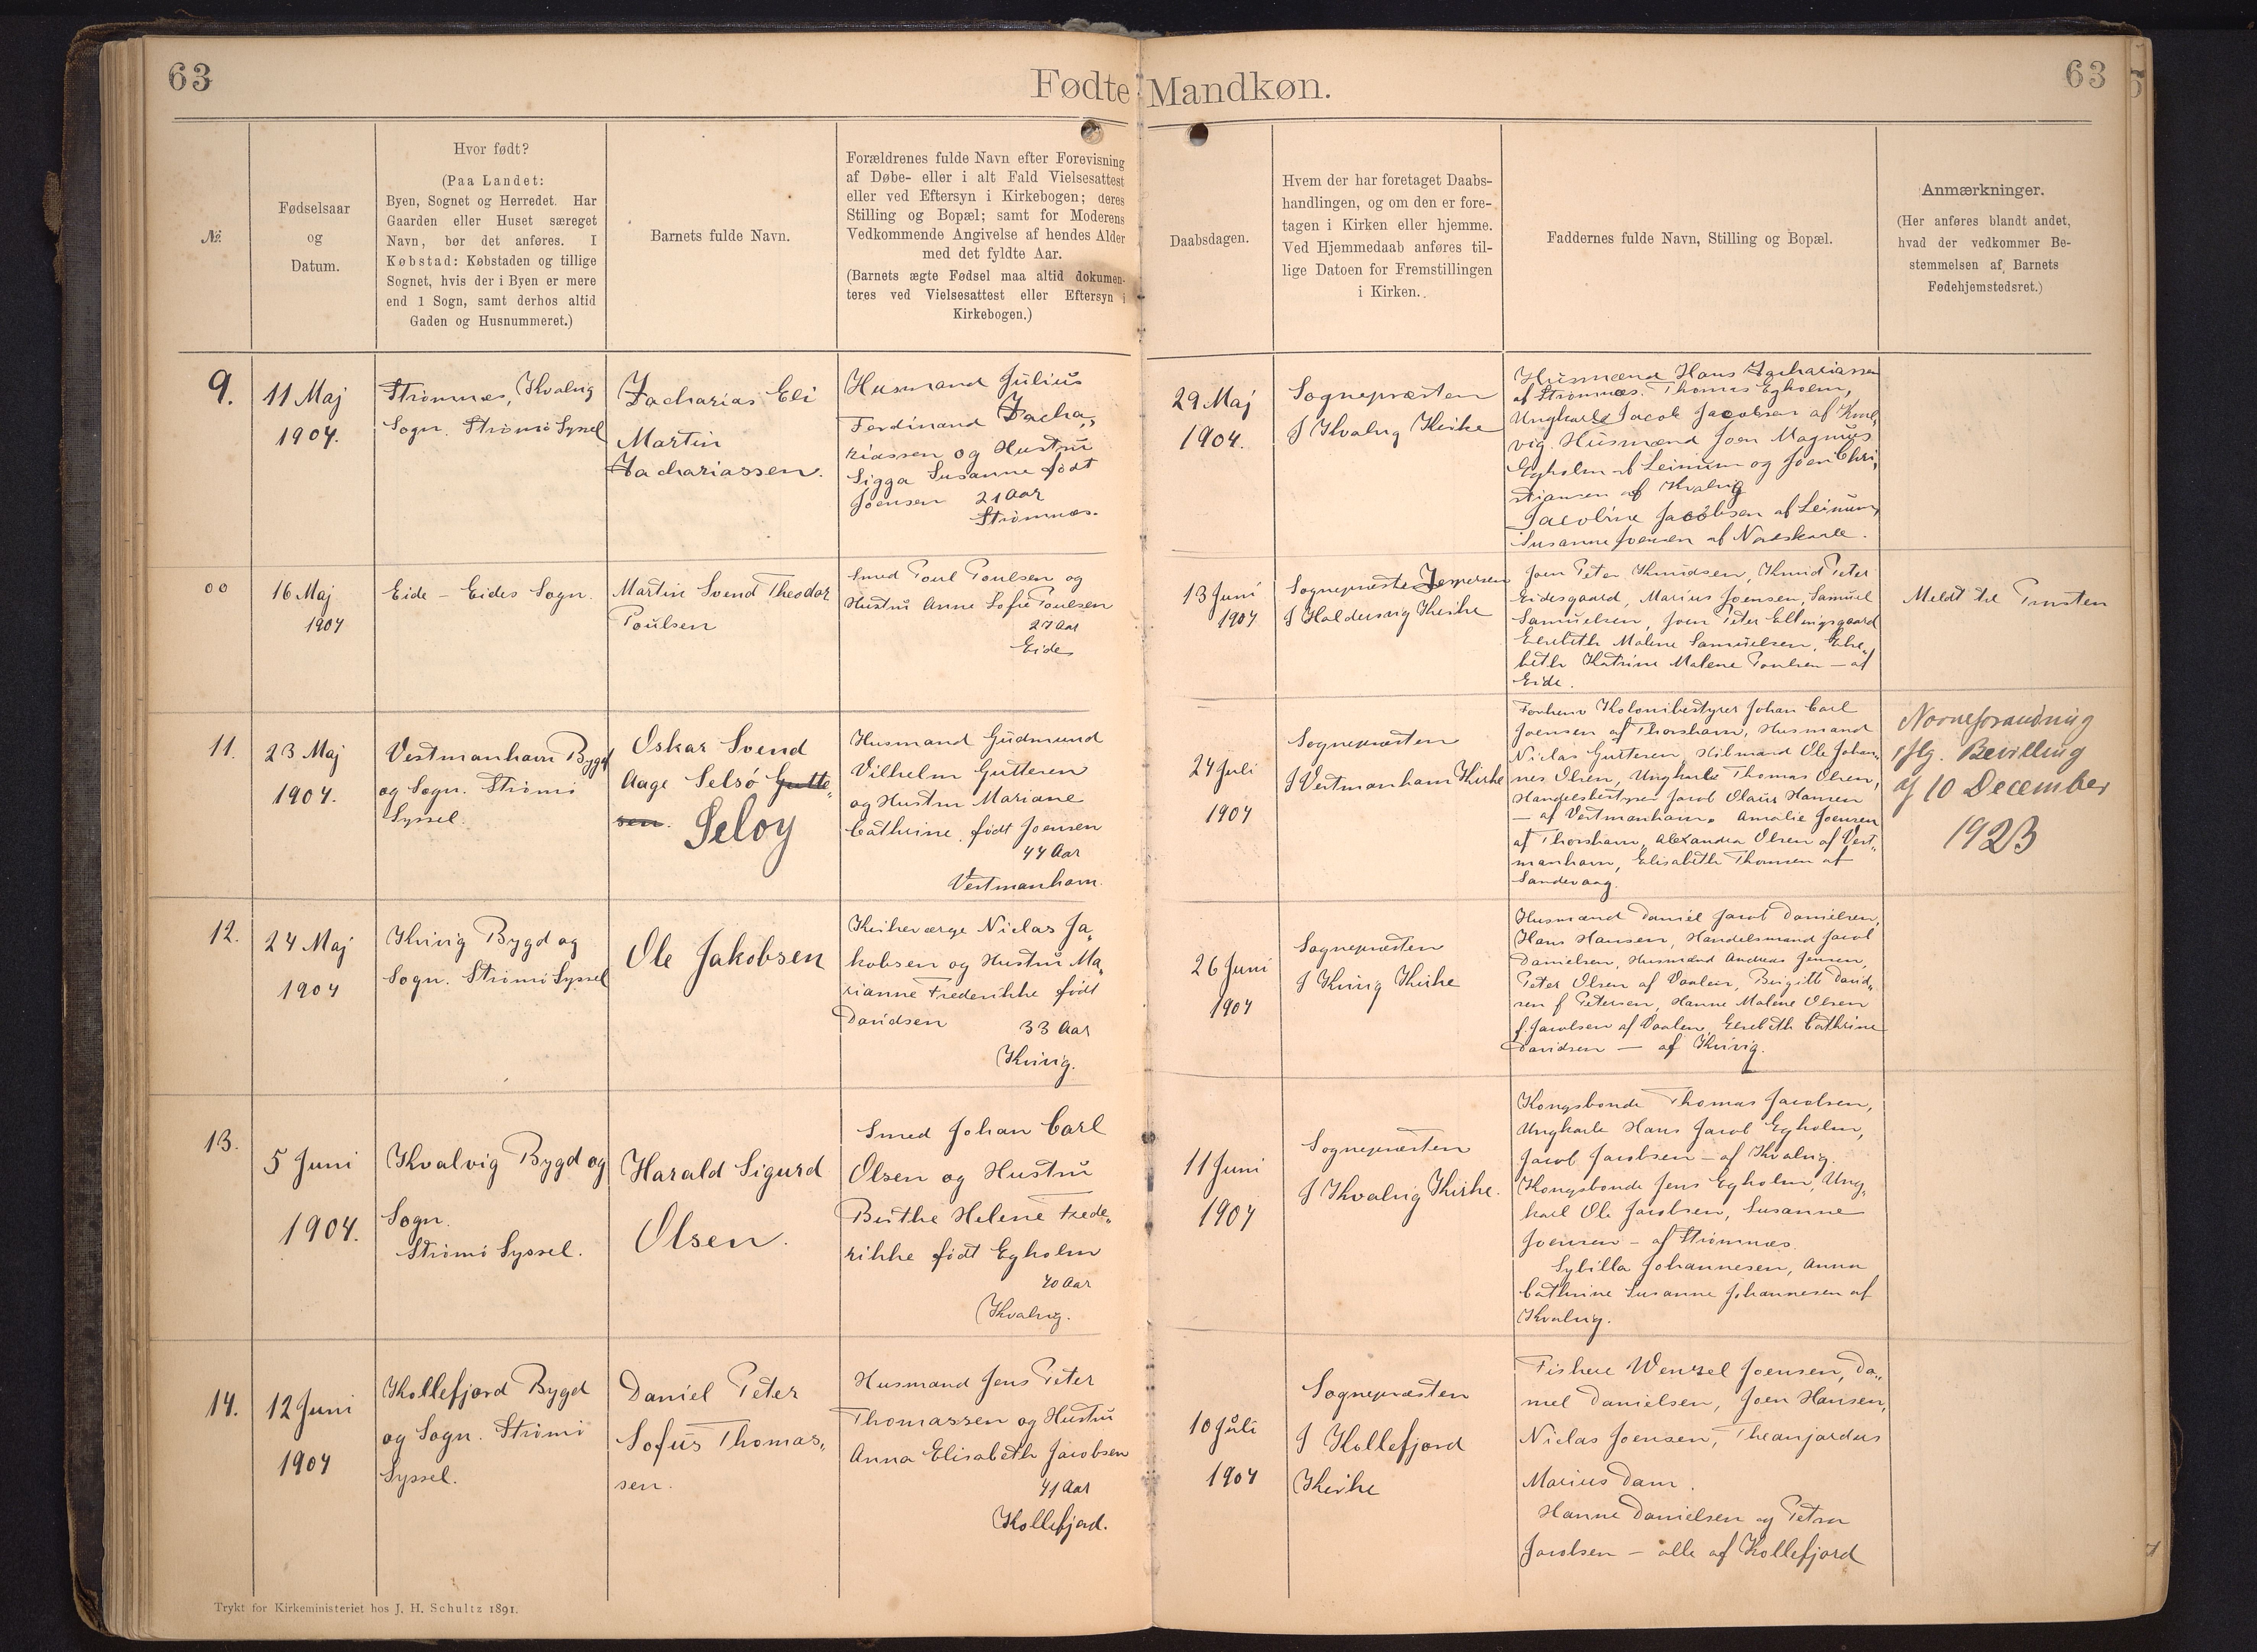 63
Fødte Mandkøn.
63
№.
Fødselsaar
og
Datum.
Hvor født?
(Paa Landet:
Byen, Sognet og Herredet. Har
Gaarden eller Huset særeget
Navn, bør det anføres. I
Købstad: Købstaden og tillige
Sognet, hvis der i Byen er mere
end 1 Sogn, samt derhos altid
Gaden og Husnummeret.)
Barnets fulde Navn.
Forældrenes fulde Navn efter Forevisning
af Døbe- eller i alt Fald Vielsesattest
eller ved Eftersyn i Kirkebogen; deres
Stilling og Bopæl; samt for Moderens
Vedkommende Angivelse af hendes Alder
med det fyldte Aar.
(Barnets ægte Fødsel maa altid dokumen-
teres ved Vielsesattest eller Eftersyn i
Kirkebogen.)
Daabsdagen.
Hvem der har foretaget Daabs-
handlingen, og om den er fore-
tagen i Kirken eller hjemme.
Ved Hjemmedaab anføres til-
lige Datoen for Fremstillingen
i Kirken.
Faddernes fulde Navn, Stilling og Bopæl.
Anmærkninger.
(Her anføres blandt andet,
hvad der vedkommer Be-
stemmelsen af Barnets
Fødehjemstedsret.)
9.
11 Maj
1904.
Strømnæs, Kvalvig
Sogn. Strömö Syssel
Zacharias Eli
Martin
Zachariassen.
Husmand Julius
Ferdinand Zacha„
riassen og Hustrü
Sigga Susanne født
Joensen 21 Aar
Strömnæs.
29 Maj
1904.
Sognepræsten
I Kvalvig Kirke
Husmænd Hans Zachariassen
af Strømnæs. Thomas Egholm,
Ungkarle Jacob Jacobsen af Kval„
vig. Husmænd Joen Magnus
Egholm af Leinum og Joen Chri„
stiansen af Kvalvig
Jacobine Jacobsen af Leinum,
Susanne Joensen af Nordskaale.
00
16 Maj
1904
Eide – Eides Sogn.
Martin Svend Theodor
Poulsen
Smed Poul Poulsen og
Hustru Anne Sofie Poulsen
27 Aar
Eide
13 Juni
1904
Sognepræsten Jespersen
I Haldersvig Kirke
Joen Peter Knudsen, Knud Peter
Eidesgaard, Marius Joensen, Samuel
Samuelsen, Joen Peter Ellingsgaard
Elsebeth Malene Samuelsen, Else„
beth Katrine Malene Poulsen — af
Eide.
Meldt til Provsten
11.
23 Maj
1904.
Vestmanhavn Bygd
og Sogn. Strömö
Syssel.
Oskar Svend
Aage Selsö Gutte„
sen. Seloy
Husmand Gudmund
Vilhelm Guttesen
og Hustru Mariane
Cathrine født Joensen
44 Aar
Vestmanhavn.
24 Juli
1904
Sognepræsten
I Vestmanhavn Kirke
Forhenv Kolonibestyrer Johan Carl
Joensen af Thorshavn, Husmand
Niclas Guttesen, Husmand Ole Johan„
nes Olsen, Ungkarle Thomas Olsen,
Handelsbestyrer Jacob Olaus Hansen
— af Vestmanhavn. Amalie Joensen
af Thorshavn, Alexandra Olsen af Vest„
manhavn, Elisabeth Thomsen af
Sandevaag.
Navneforandring
iflg. Bevilling
af 10 December
1923
12.
24 Maj
1904
Kvivig Bygd og
Sogn. Strömö Syssel
Ole Jakobsen
Kirkeværge Niclas Ja„
kobsen og Hustrü Ma„
rianne Frederikke født
Davidsen 33 Aar
Kvivig.
26 Juni
1904
Sognepræsten
I Kvivig Kirke
Husmænd Daniel Jacob Danielsen,
Hans Hansen, Handelsmand Jacob
Danielsen, Husmand Andreas Jensen,
Peter Olsen af Vaalen, Birgitte David„
sen f Petersen, Hanne Malene Olsen
f. Jacobsen af Vaalen, Elsebeth Cathrine
Davidsen — af Kvivig.
13.
5 Juni
1904.
Kvalvig Bygd og
Sogn.
Strömö Syssel.
Harald Sigurd
Olsen.
Smed Johan Carl
Olsen og Hustrü
Birthe Helene Frede„
rikke født Egholm
40 Aar
Kvalvig.
11 Juni
1904
Sognepræsten
I Kvalvig Kirke.
Kongsbonde Thomas Jacobsen,
Ungkarle Hans Jacob Egholm,
Jacob Jacobsen – af Kvalvig.
Kongsbonde Jens Egholm, Ung„
karl Ole Jacobsen, Susanne
Joensen – af Strömnæs.
Sybilla Johannesen, Anna
Cathrine Susanne Johannesen af
Kvalvig.
14.
12 Juni
1904
Kollefjord Bygd
og Sogn. Strömö
Syssel.
Daniel Peter
Sofus Thomas„
sen.
Husmand Jens Peter
Thomassen og Hustru
Anna Elisabeth Jacobsen
41 Aar
Kollefjord.
10 Juli
1904
Sognepræsten
I Kollefjord
Kirke
Fiskere Wenzel Joensen, Da„
niel Danielsen, Joen Hansen,
Niclas Joensen,
Marius Dam.
Hanne Danielsen og Petra
Jacobsen — alle af Kollefjord
Trykt for Kirkeministeriet hos J. H. Schultz 1891.